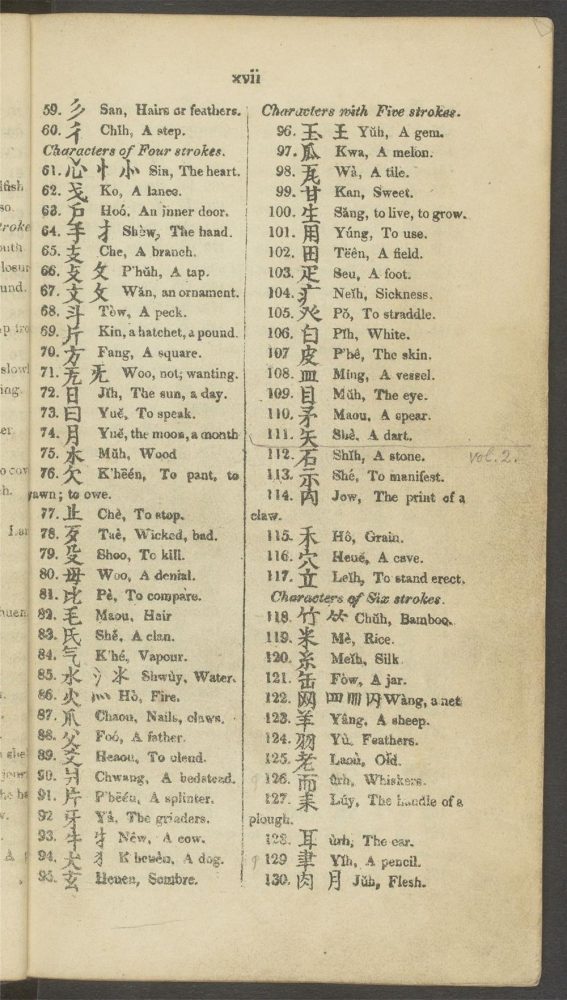 xvii
59. 彡 San, Hairs or feathers.
60. 彳 Chĭh, A step.
Characters of Four strokes.
61. 心 忄 㣺 Sin, The heart.
62. 戈 Ko, A lance.
63. 戶 Hoó. An inner door.
64. 手 扌 Shèw, The hand.
65. 支 Che, A branch.
66. 攴 攵 P'hŭh, A tap.
67. 文 攵 Wăn, an ornament.
68. 斗 Tòw, A peck.
69. 斤 Kin, a hatchet, a pound.
70. 方 Fang, A square.
71. 无 旡 Woo, not; wanting.
72. 日 Jĭh, The sun, a day.
73. 曰 Yuĕ, To speak.
74. 月 Yuĕ, the moon, a month
75. 木 Mŭh, Wood
76. 欠 K'hëén, To pant, to
yawn; to owe.
77. 止 Chè, To stop.
78. 歹 Taè, Wicked, bad.
79. 殳 Shoo, To kill.
80. 毋 Woo, A denial.
81. 比 Pè, To compare.
82. 毛 Maou, Hair
83. 氏 Shé, A clan.
84. 气 K'hé, Vapour.
85. 水 氵 氺 Shwùy, Water.
86. 火 灬 Hò, Fire.
87. 爪 Chaou, Nails, claws.
88. 父 Foó, A father.
89. 爻 Heaou, To blend.
90. 爿 Chwang, A bedstead.
91. 片 P'hëén, A splinter.
92 牙 Yâ. The grinders.
93. 牛 牜 Nêw, A cow.
94. 犬 犭 K'heuèn, A dog.
95. 玄 Heuen, Sombre.
Characters with Five strokes.
96. 玉 王 Yŭh, A gem.
97. 瓜 Kwa, A melon.
98. 瓦 Wà, A tile.
99. 甘 Kan, Sweet.
100. 生 Săng, to live, to grow.
101. 用 Yúng, To use.
102. 田 Tëên, A field.
103. 疋 Seu, A foot.
104. 疒 Neĭh, Sickness.
105. 癶 Pŏ, To straddle.
106. 白 Pĭh, White.
107 皮 P'hê, The skin.
108. 皿 Ming, A vessel.
109. 目 Mŭh, The eye.
110. 矛 Maou, A spear.
111. 矢 Shè. A dart.
112. 石 Shĭh, A stone.
vol. 2.
113. 示 Shé, To manifest.
114. 禸 Jow, The print of a
claw.
115. 禾 Hô, Grain.
116. 穴 Heuĕ, A cave.
117. 立 Leĭh, To stand erect.
Characters of Six strokes.
118. 竹 Chŭh, Bamboo.
119. 米 Mè, Rice.
120. 糸 Meĭh, Silk.
121. 缶 Fòw, A jar.
122. 网 Wàng, a net
123. 羊 Yâng, A sheep.
124. 羽 Yù. Feathers.
125. 老 Laoù, Old.
126. 而 ûrh, Whiskers.
127. 耒 Lúy, The handle of a
plough.
128. 耳 ùrh, The ear.
129 聿 Yĭh, A pencil.
130. 肉 月 Jŭh, Flesh.